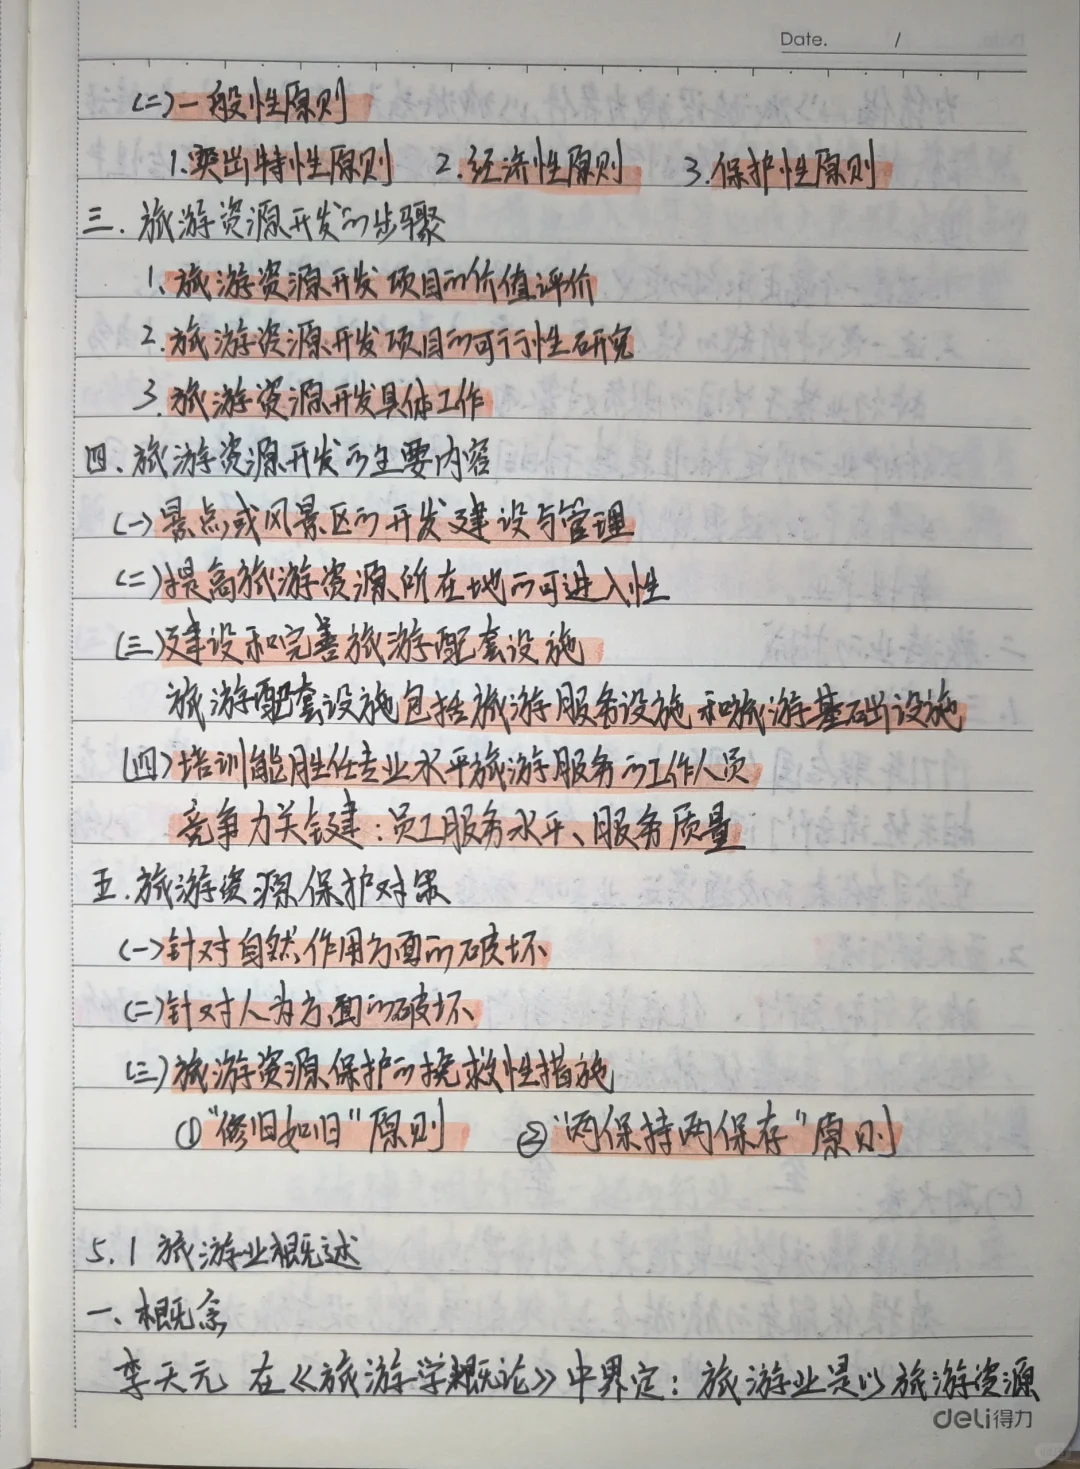 Date. /
(二)一般性原则
1.突出特性原则 2.经济性原则 3.保护性原则
三.旅游资源开发的步骤
1.旅游资源开发项目的价值评价
2.旅游资源开发项目的可行性研究
3.旅游资源开发具体工作
四、旅游资源开发的主要内容
(一)景点或风景区的开发建设与管理
(二)提高旅游资源所在地的可进入性
(三)建设和完善旅游配套设施
旅游配套设施包括旅游服务设施和旅游基础设施
(四)培训能胜任专业水平旅游服务的工作人员
竞争力关键：员工服务水平、服务质量
五.旅游资源保护对策
(一)针对自然作用方面的破坏
(二)针对人为方面的破坏
(三)旅游资源保护的挽救性措施
①“修旧如旧”原则 ②“两保持两保存”原则
5.1 旅游业概述
一、概念
李天元 在《旅游学概论》中界定：旅游业是以旅游资源
deli得力